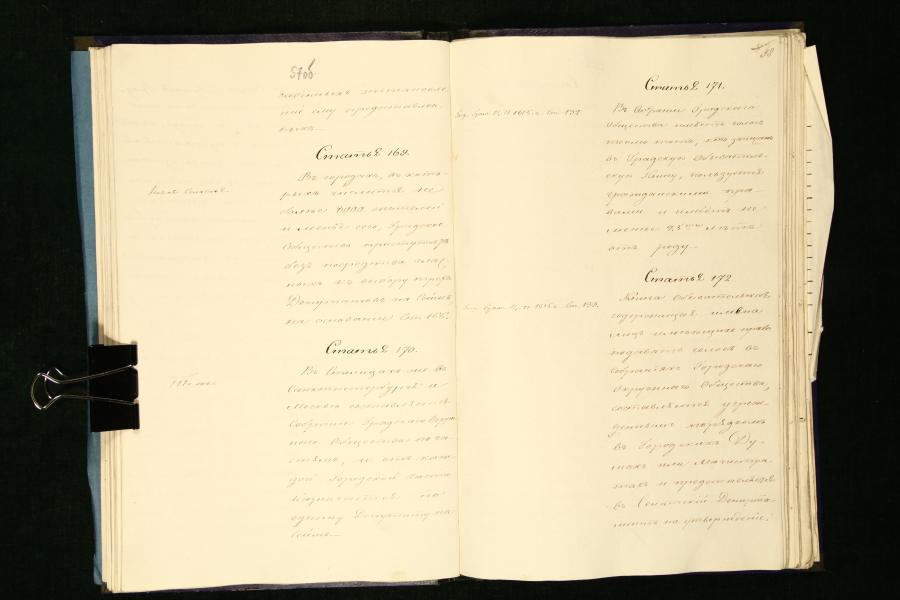 57об
законныхъ постановле-
ній ему предоставлен-
ныхъ.
Статья 169.
Въ городахъ, въ кото-
рыхъ числится не
болѣе 8000 жителей
и менѣе сего, Градское
Общество приступаетъ
безъ посредства глас-
ныхъ къ выбору трехъ
Депутатовъ на Сеймъ
на основаніи Ст. 165.
Статья 170.
Въ Столицахъ же въ
Санктпетербургѣ и
Москвѣ составляются
Собранія Градскаго Окруж-
наго Общества по ча-
стямъ, и отъ каж-
дой Городской части
назначается по
одному Депутату на
Сеймъ.
58
Статья 171.
Въ Собраніи Градскаго
Общества имѣетъ голосъ
токмо тотъ, кто записанъ
въ Градскую Обыватель-
скую Книгу, пользуется
гражданскими пра-
вами и имѣетъ не
менѣе 25 лѣтъ
отъ роду.
Статья 172
Книга Обывательская
содержащая имена
лицъ имѣющихъ право
подавать голосъ въ
собраніяхъ Городскаго
Окружнаго Общества,
составляется учреж-
деннымъ порядкомъ
въ Городскихъ Ду-
махъ или Магистра-
тахъ и представляется
въ Сенатскій Департа-
ментъ на утвержденіе.